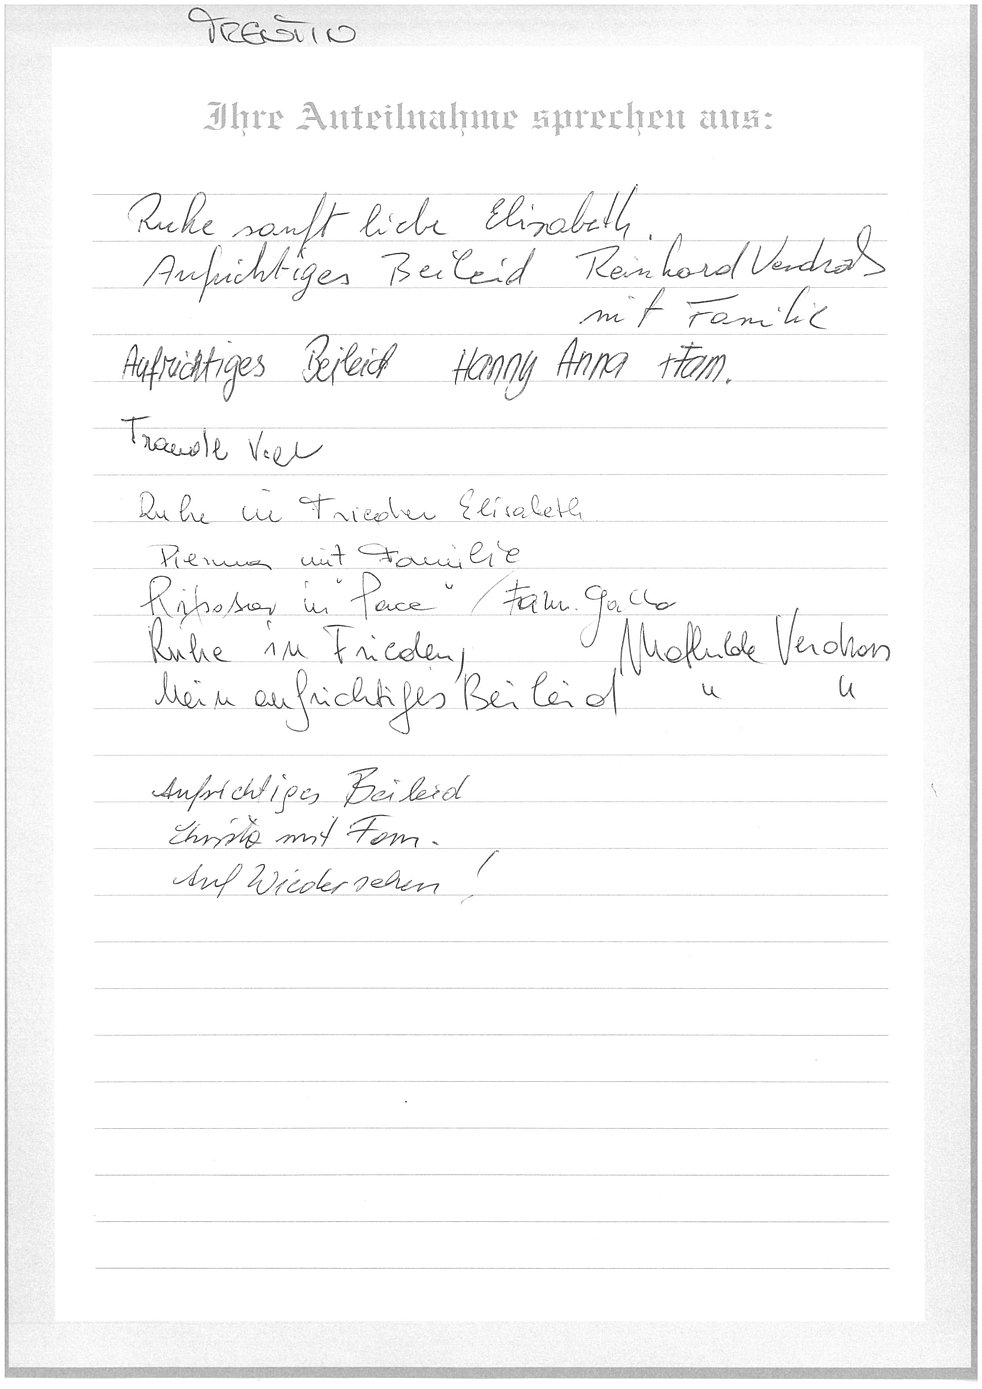 TRENTIN
Ihre Anteilnahme sprechen aus:
Ruhe sanft liebe Elisabeth.
Aufrichtiges Beileid Reinhard Verdross
mit Familie
Aufrichtiges Beileid Hanny Anna + Fam.
Traudl
Ruhe in Frieden Elisabeth
mit Familie
in "Pace" / Fam. Gallo
Ruhe in Frieden, Mathilde Verdross
Mein aufrichtiges Beileid " "
Aufrichtiges Beileid
Christa mit Fam.
Auf Wiedersehen!